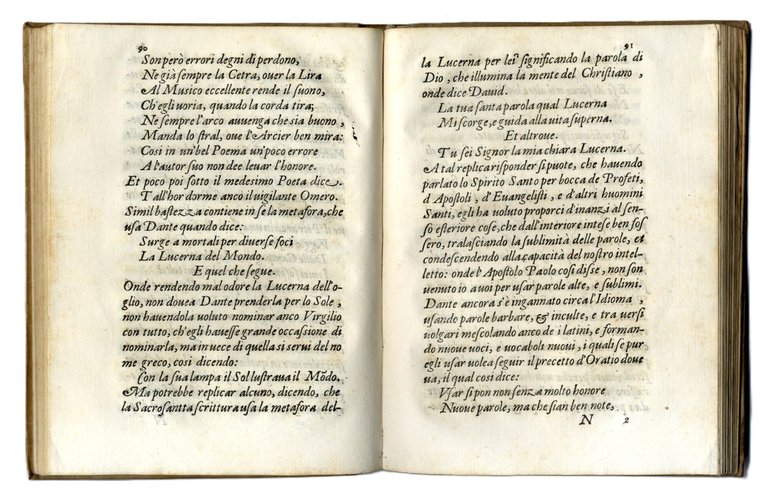 90
Son però errori degni di perdono,
Ne già sempre la Cetra, ouer la Lira
Al Musico eccellente rende il suono,
Ch'egli uoria, quando la corda tira;
Ne sempre l'arco auuenga che sia buono,
Manda lo stral, oue l'Arcier ben mira:
Cosi in un'bel Poema un'poco errore
A l'autor suo non dee leuar l'honore.
Et poco poi sotto il medesimo Poeta dice.
Tall'hor dorme anco il uigilante Omero.
Simil bastezza contiene in se la metafora, che
usa Dante quando dice:
Surge a mortali per diuerse foci
La Lucerna del Mondo.
E quel che segue.
Onde rendendo mal odore la Lucerna dell'o-
glio, non douea Dante prenderla per lo Sole,
non hauendola uoluto nominar anco Virgilio
con tutto, ch'egli hauesse grande occassione di
nominarla, ma in uece di quella si seruì del no
me greco, cosi dicendo:
Con la sua lampa il Sol lustraua il Mōdo,
Ma potrebbe replicar alcuno, dicendo, che
la Sacrosantta scrittura usa la metafora del-
91
la Lucerna per lei significando la parola di
Dio, che illumina la mente del Christiano,
onde dice Dauid.
La tua santa parola qual Lucerna
Mi scorge, e guida alla uita superna.
Et altroue.
Tu sei Signor la mia chiara Lucerna.
A tal replica risponder si puote, che hauendo
parlato lo Spirito Santo per bocca de Profeti,
d'Apostoli, d'Euangelisti, e d'altri huomini
Santi, egli ha uoluto proporci d'inanzi al sen-
so esteriore cose, che dall'interior intese ben fos
sero, tralasciando la sublimità delle parole, et
condescendendo alla capacità del nostro intel-
letto: onde l'Apostolo Paolo cosi disse, non son
uenuto io a uoi per usar parole alte, e sublimi.
Dante ancora s'è ingannato circa l'Idioma,
usando parole barbare, & inculte, e tra uersi
uolgari mescolando anco de i latini, e forman-
do nuoue uoci, e uocaboli nuoui, i quali se pur
egli usar uolea seguir il precetto d'Oratio doue
ua, il qual cosi dice:
Vsar si pon non senza molto honore
Nuoue parole, ma che sian ben note,
N 2